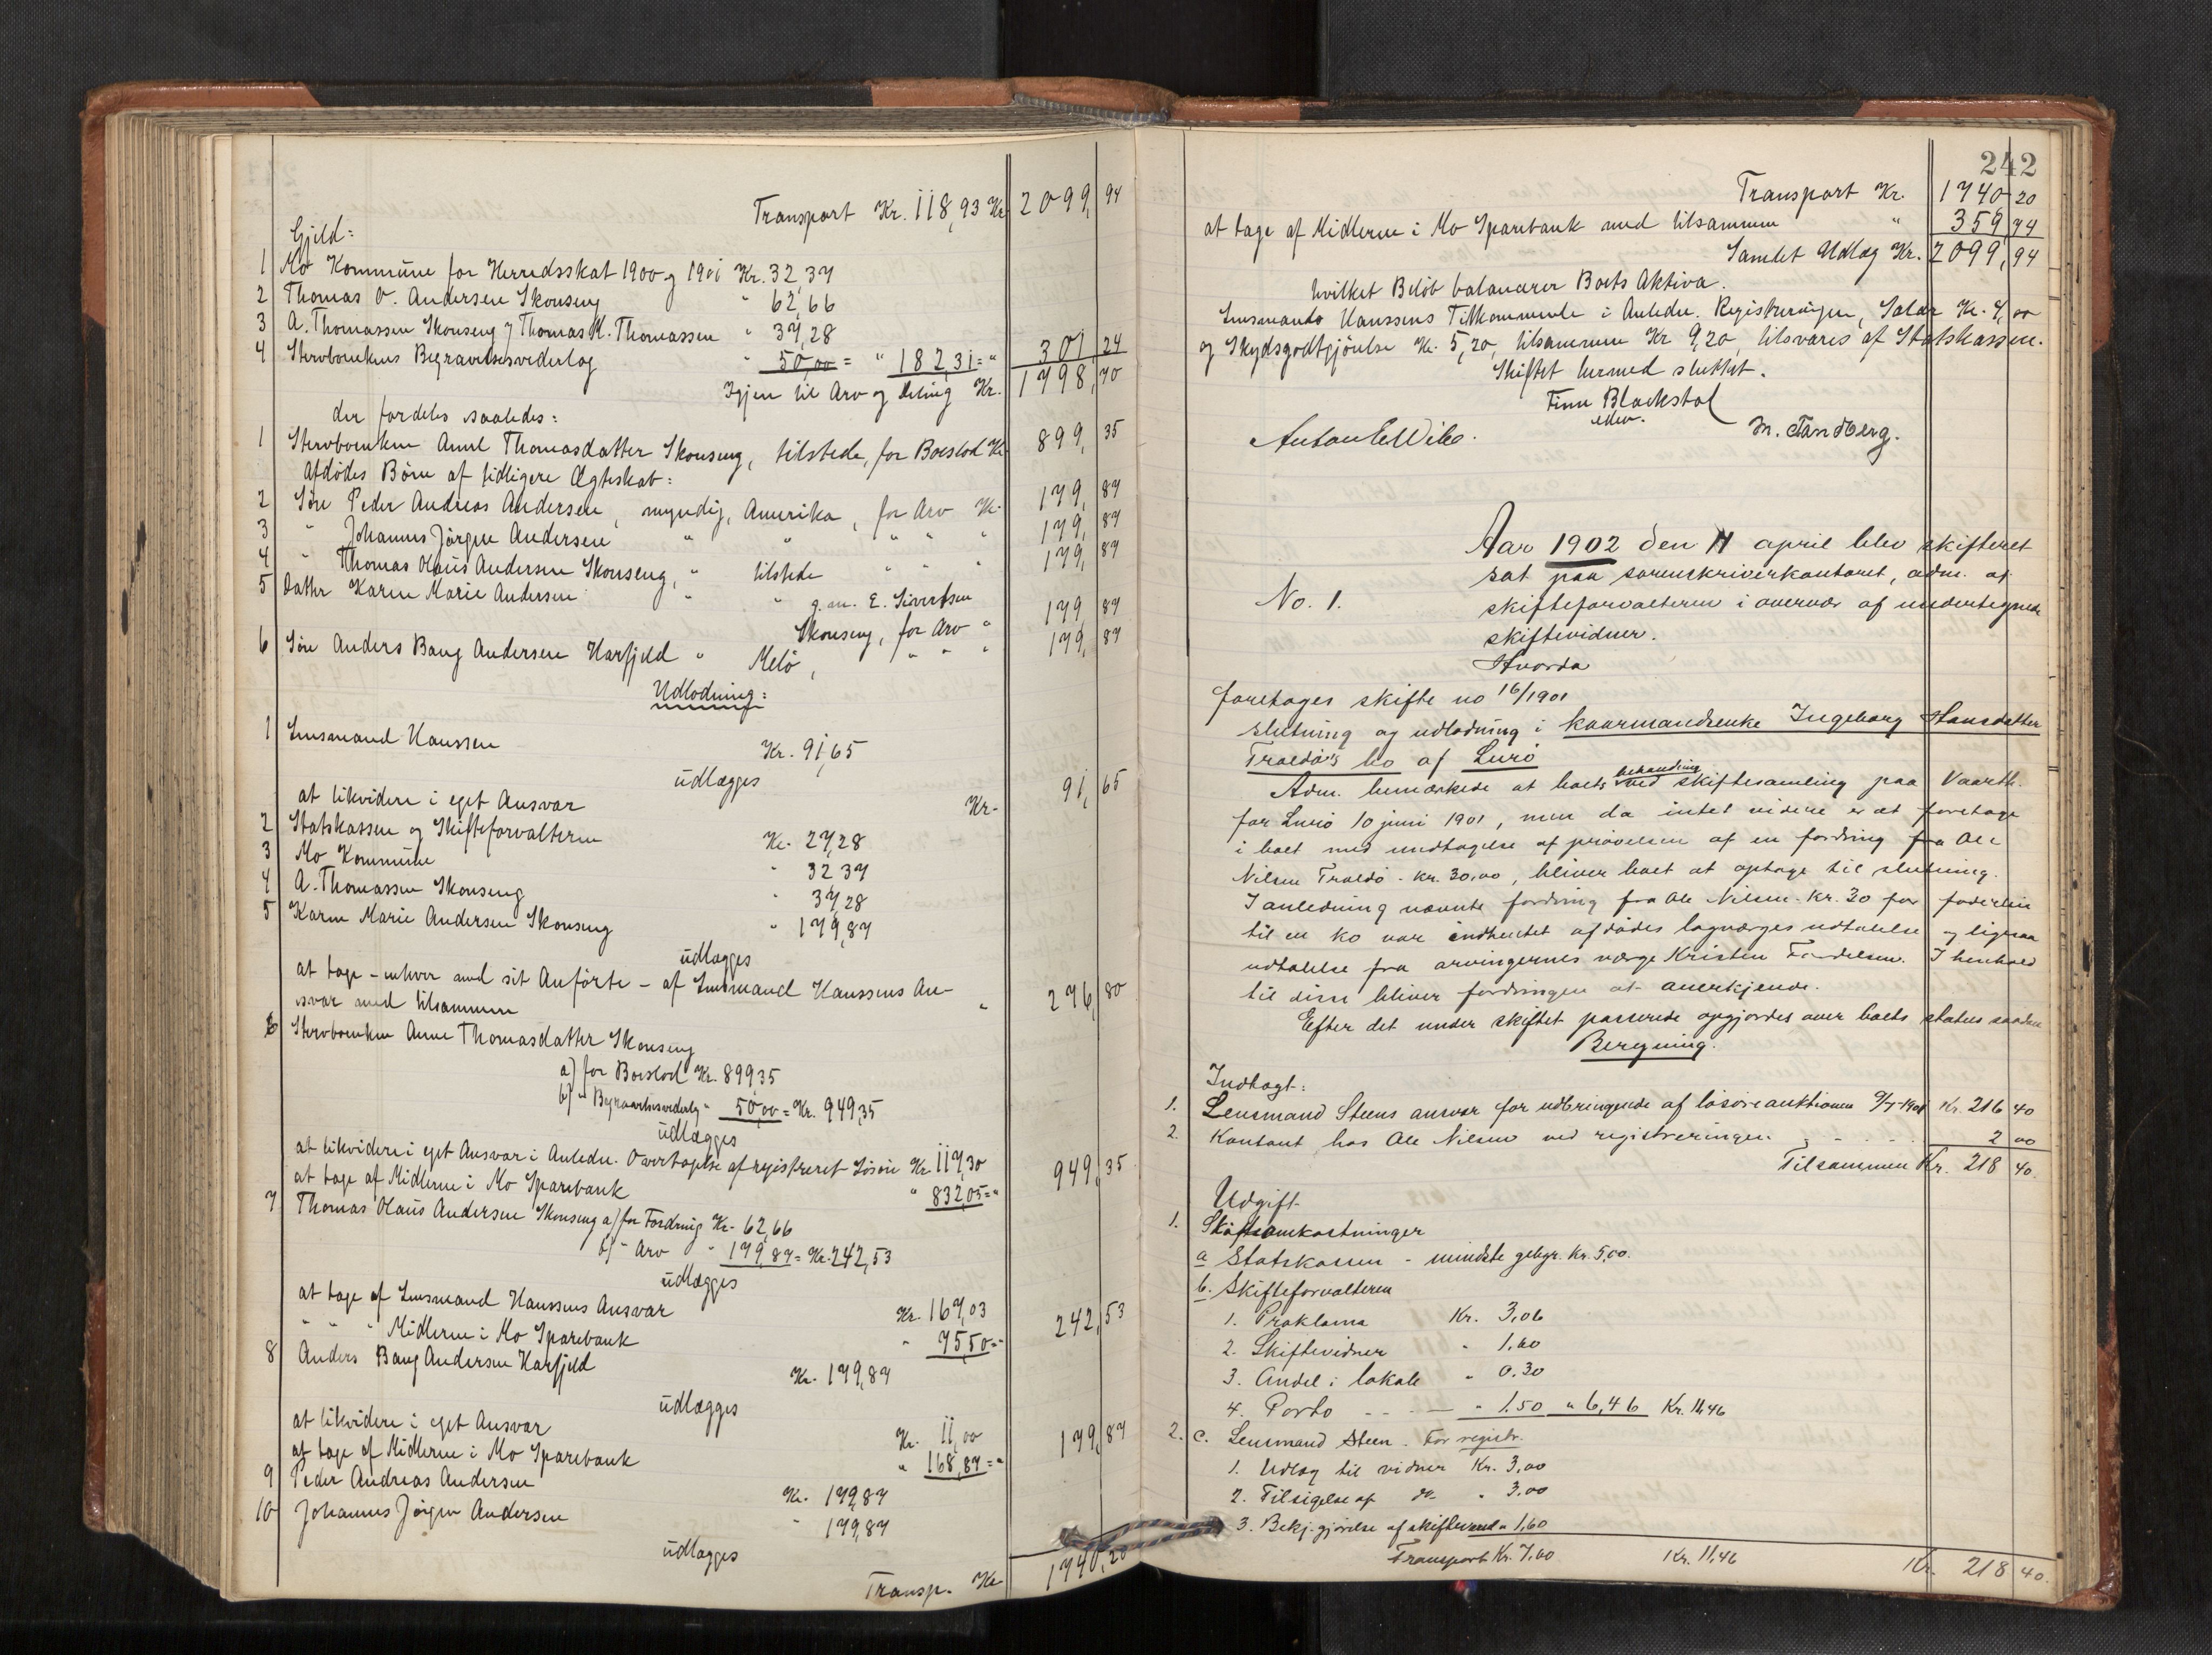 Transport Kr. 118,93 Kr 2099,94
Gjeld:
1 Mo Kommune for Herredsskat 1900 og 1901 Kr. 32,37
2 Thomas O. Andersen Skonseng " 62,66
3 A. Thomassen Skonseng f Thomas K. Thomassen " 37,28
4 Stervboenkens Begravelsesvederlag " 50,00 = " 182,31 = " 301,24
Igjen til Arv og Deling Kr. 1798,70
der fordeles saaledes:
1 Stervboenken Anne Thomasdatter Skonseng, tilstede, for Boeslod Kr. 899,35
Afdødes Børn af tidligere Ægteskab:
2 Søn Peder Andreas Andersen, myndig, Amerika, for Arv Kr. 179,87
3 " Johannes Jörgen Andersen " " " " " 179,87
4 " Thomas Olaüs Andersen Skonseng, " tilstede " " " 179,87
5 Datter Karen Marie Andersen " " g.m. E. Sivertsen
Skonseng, for Arv " 179,87
6 Søn Anders Bang Andersen Harfjeld " Melö, " " " 179,87
Udlodning:
1 Lensmand Hanssen Kr. 91,65
udlægges
at likvidere i eget Ansvar Kr. 91,65
2 Statskassen og Skifteforvalteren Kr. 27,28
3 Mo Kommune " 32 37
4 A. Thomassen Skonseng " 37,28
5 Karen Marie Andersen Skonseng " 179,87
udlægges
at tage - enhver med sit Anførte - af Lensmand Hanssens An-
svar med tilsammen " 276,80
6 Stervboenken Anne Thomasdatter Skonseng
a) for Boeslod Kr. 899 35
b) " Begravelsesvederlag " 50,00 = Kr. 949,35
udlægges
at likvidere i eget Ansvar i Anledn. Overtagelse af registreret Løsøre Kr. 117,30
at tage af Midlerne i Mo Sparebank " 832,05 = " 949,35
7 Thomas Olaüs Andersen Skonseng a) for Fordring Kr. 62,66
b) " Arv " 179,87 = Kr. 242,53
udlægges
at tage af Lensmand Hanssens Ansvar Kr. 167,03
" " " Midlerne i Mo Sparebank " 75,50 = " 242,53
8 Anders Bang Andersen Harfjeld Kr. 179,87
udlægges
at likvidere i eget Ansvar Kr. 11,00
at tage af Midlerne i Mo Sparebank " 168,87 = " 179,87
9 Peder Andreas Andersen Kr. 179,87
10 Johannes Jörgen Andersen " 179,87
udlægges
Transp. Kr. 1740,20
242
Transport Kr. 1740 20
at tage af Midlerne i Mo Sparebank med tilsammen " 359,74
Samlet Udlæg Kr. 2099,94
hvilket Beløb balancerer Boets Aktiva.
Lensmands Hanssens Tilkommende i Anledn. Registreringen, Salær Kr. 4,00
og Skydsgodtgjörelse Kr. 5,20, tilsammen Kr 9,20, tilsvares af Statskassen.
Skiftet hermed sluttet.
Finn Blackstad
M. Tandberg.
Aar 1902 den 11 april blev skifteret
sat paa sorenskriverkontoret, adm. af
No. 1. skifteforvalteren i overvær af undertegnede
skiftevidner.
Hvorda
foretages skifte no 16/1901
slutning og udlodning i kaarmandsenke Ingeborg Hansdatter
Traldø's bo af Lurö
Adm. bemærkede at boets behandling ved skiftesamling paa Vaarth.
for Lurö 10 juni 1901, men da intet videre er at foretage
i boet med undtagelse af prøvelsen af en fordring fra Ole
Nilsen Traldö - kr. 30,00, bliver boet at optage til slutning.
I anledning nævnte fordring fra Ole Nilsen - kr. 30 for foderløn
til en ko var indhentet afdødes lagværges udtalelse og ligesaa
udtalelse fra arvingernes værge Kristen. I henhold
til disse bliver fordringen at anerkjende.
Efter det under skiftet passerede opgjordes over boets status saadan
Beregning.
Indtægt:
1. Lensmand Steens ansvar for udbringende af løsøreauktionen Kr. 216 40
2. Kontant hos Ole Nilsen ved registreringen " 2 00
Tilsammen Kr. 218 40.
Udgift
1. Skifteomkostninger
a Statskassen - mindste gebyr. Kr. 5,00.
b. Skifteforvalteren
1. Proklama Kr. 3,06
2. Skiftevidner " 1,60
3. Andel i lokale " 0.30
4. Porto " 1.50 " 6,46 Kr. 11,46
2. c. Lensmand Steen. For registr.
1. Udlæg til vidner Kr. 3,00
2. Tilsigelse af do " 3.00
3. Bekj.gjörelse af skiftevered " 1,60
Transport Kr. 7,60 Kr. 11,46 Kr. 218 40.